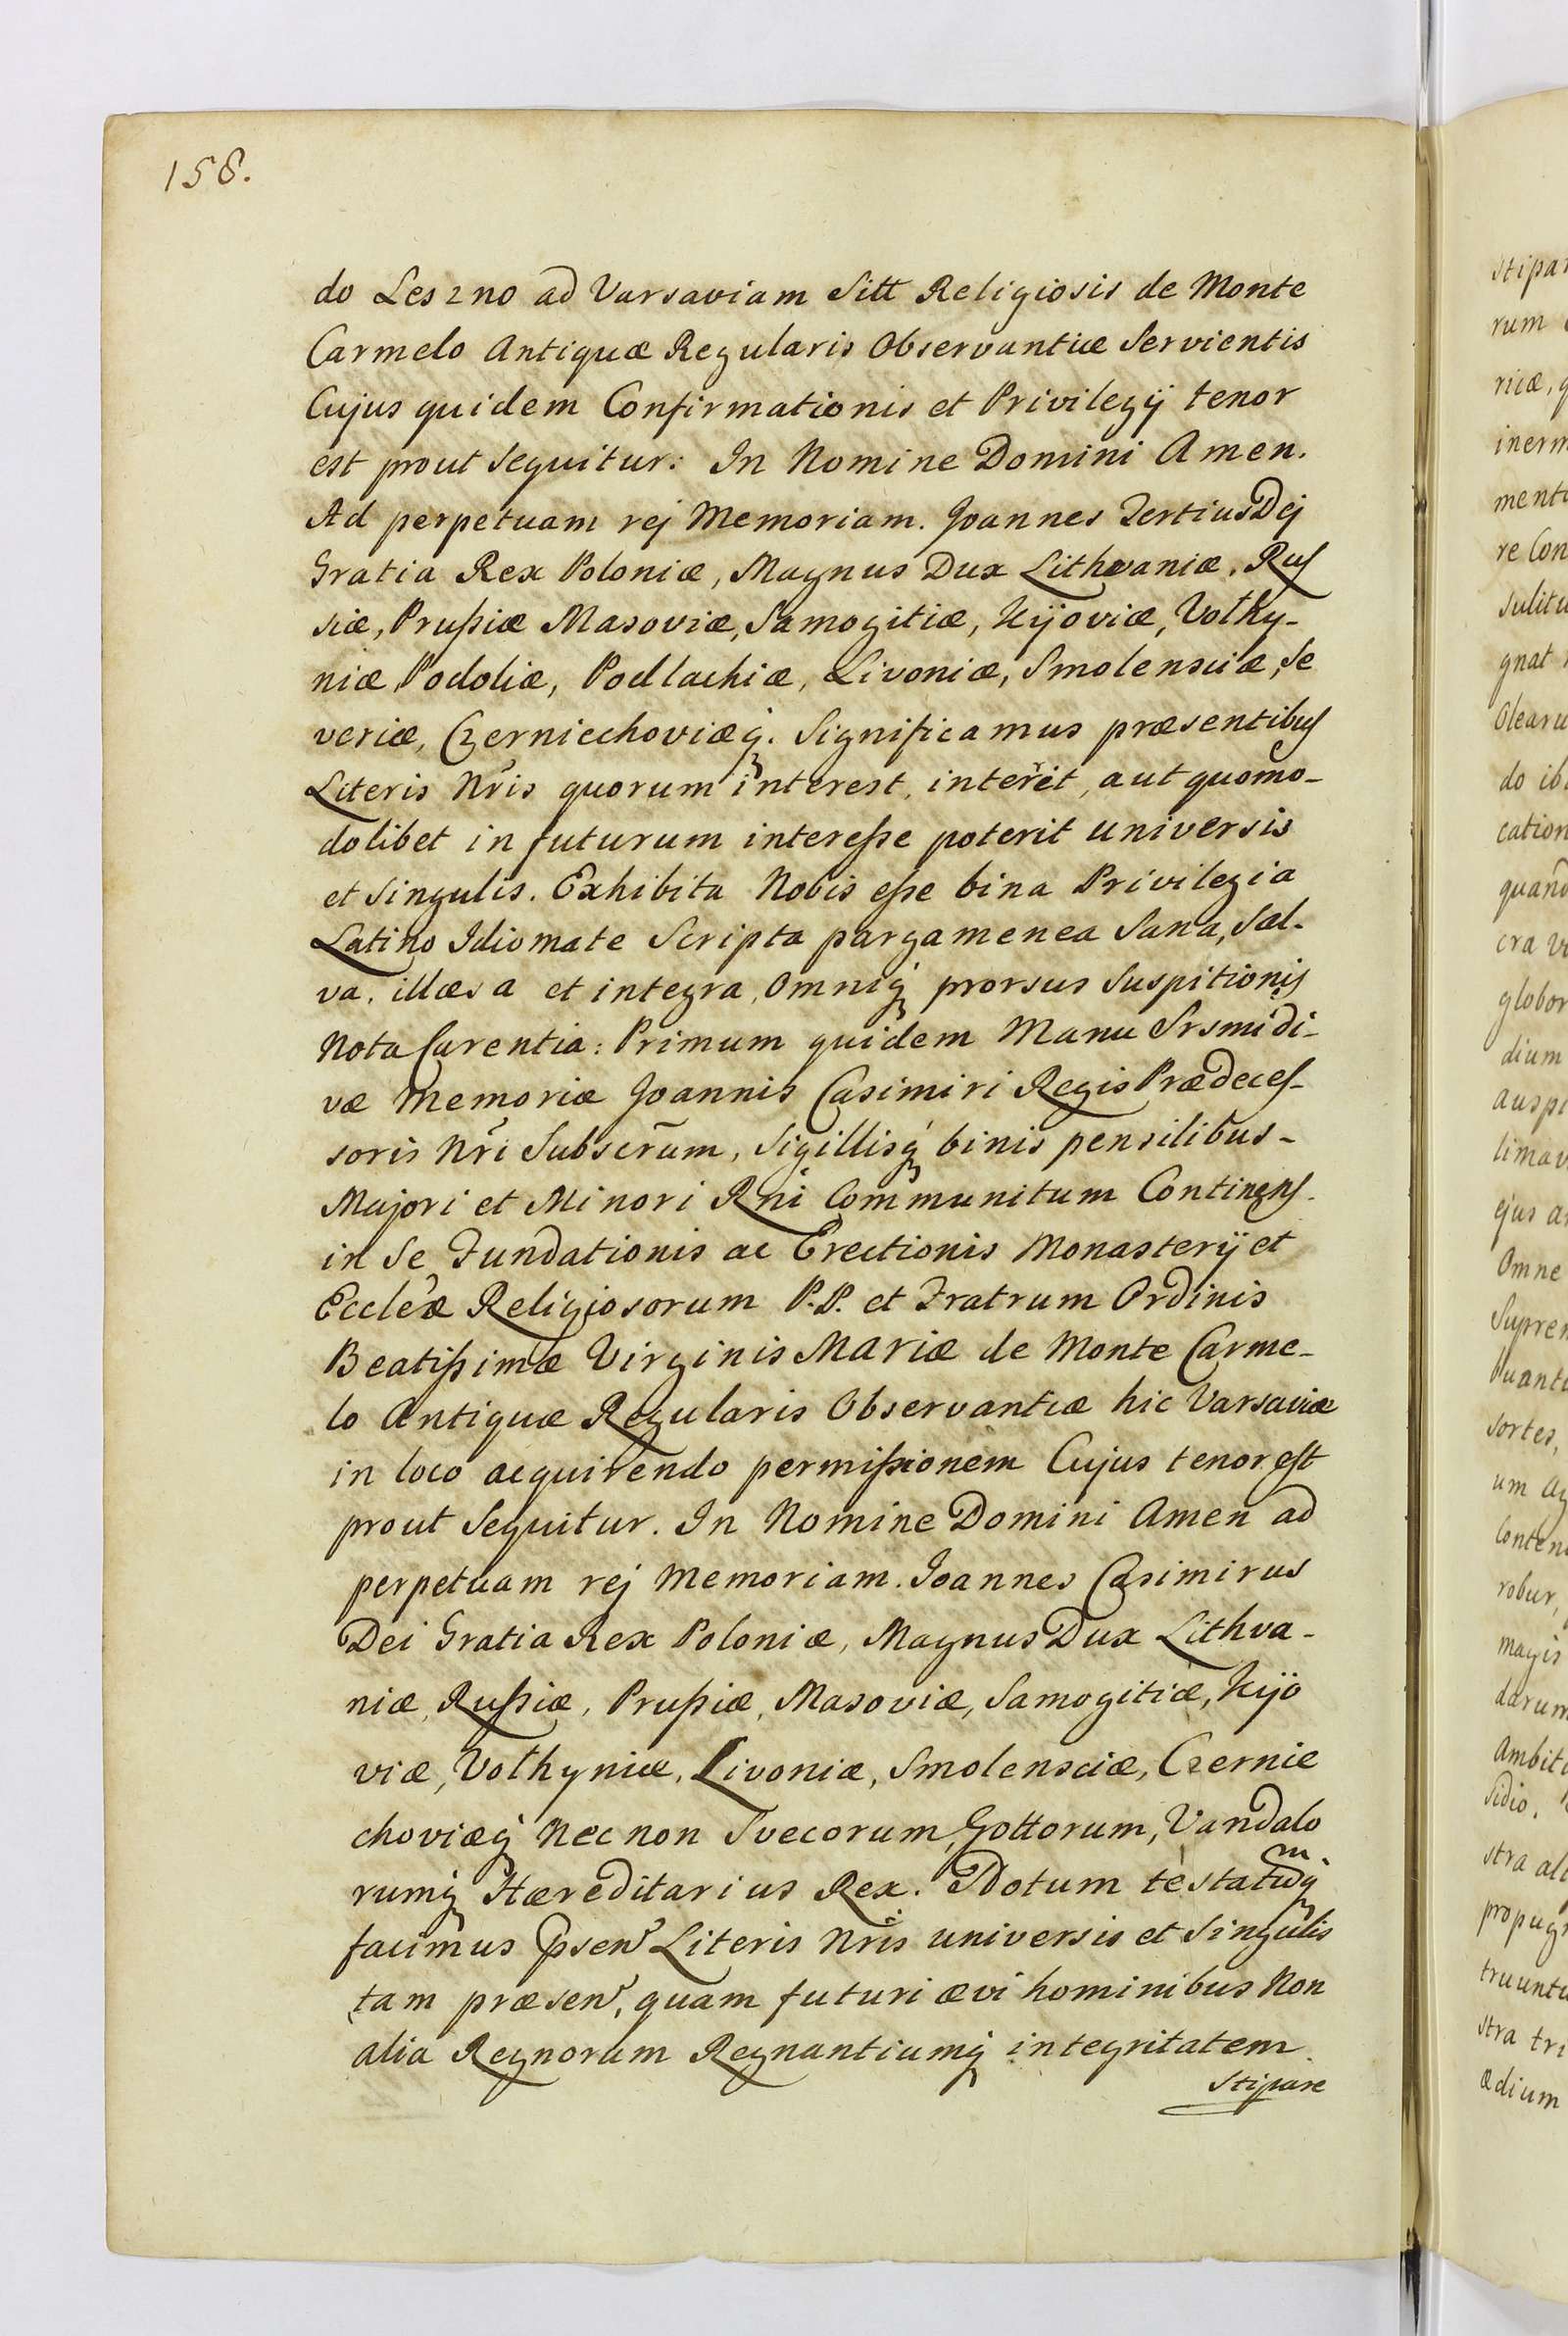 158.
do Leszno ad Varsaviam Sitt Religiosis de Monte
Carmelo Antiquæ Regularis Observantiæ Servientis
Cujus quidem Confirmationis et Privilegij tenor
est prout Sequitur: In Nomine Domini Amen.
Ad perpetuam rej Memoriam. Joannes Tertius Dej
Gratia Rex Poloniæ, Magnus Dux Lithvaniæ, Rus
siæ, Prußiæ Masoviæ, Samogitiæ, Kijoviæ, Volhy-
niæ, Podoliæ, Podlachiæ, Livoniæ, Smolensciæ, Se
veriæ, Czerniechoviæq́. Significamus præsentibus
Literis Nr̃is quorum interest, intererit, aut quomo-
dolibet in futurum intereße poterit universis
et Singulis. Exhibita Nobis eße bina Privilegia
Latino Idiomate Scripta pargamenea Sana, Sal-
va, illæsa et integra, Omniq́ prorsus Suspitionis
Nota Carentia: Primum quidem Manu Srsmi di-
væ Memoriæ Joannis Casimiri Regis Prædeces-
soris Nr̃i Subscr̃um, Sigillisq́ binis pensilibus-
Majori et Minori Rni Communitum Continens.
in Se Fundationis ac Erectionis Monasterij et
Eccle͠æ Religiosorum P.P. et Fratrum Ordinis
Beatißimæ Virginis Mariæ de Monte Carme-
lo Antiquæ Regularis Observantiæ hic Varsaviæ
in loco acquirendo permißionem Cujus tenor est
prout Sequitur. In Nomine Domini Amen ad
perpetuam rej Memoriam. Joannes Casimirus
Dei Gratia Rex Poloniæ, Magnus Dux Lithva-
niæ, Rußiæ, Prußiæ, Masoviæ, Samogitiæ, Kijo
viæ, Volhyniæ, Livoniæ, Smolensciæ, Czernie
choviæq́ Nec non Svecorum, Gottorum, Vandalo
rumq́ Hæreditarius Rex. Notum testatumq́
facimus p̃sen͠ Literis Nr̃is universis et Singulis
tam præsen͠, quam futuri ævi hominibus Non
alia Regnorum Regnantiumq́ integritatem
Stipare
stipar
rum
riæ, q
inerm
mentu
re Con
sulitu
gnat
Olearu
do ib
cation
quand
cra Vi
globor
dium
auspi
limav
ejus a
Omne
Suprem
Quant
sortes,
um ag
Conten
robur,
magis
darum
Ambit
sidio.
stra al
propug
truunt
stra tri
ædium